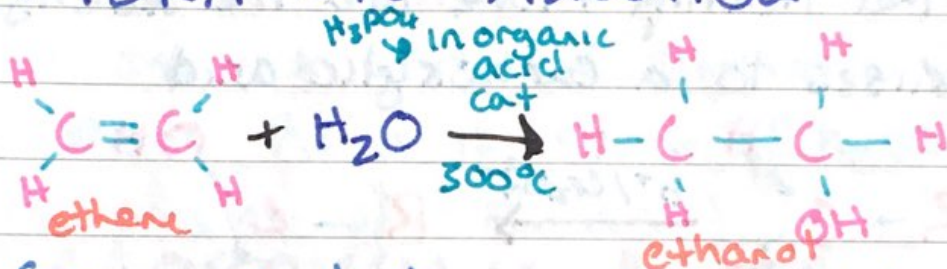 H₃PO₄ inorganic
acid
cat
H H H H
C=C + H₂O → H-C-C-H
300°C
H H H OH
ethene ethanol